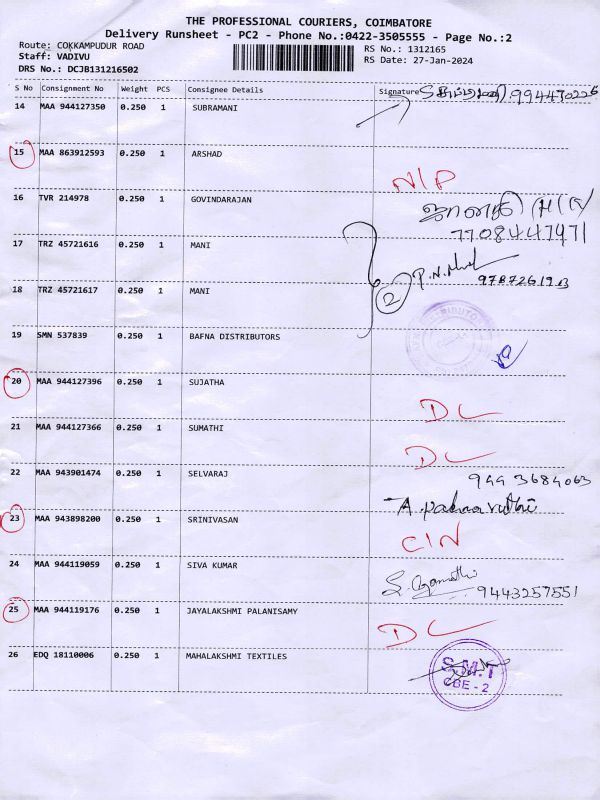 THE PROFESSIONAL COURIERS, COIMBATORE
Delivery Runsheet - PC2 - Phone No.:0422-3505555 - Page No.:2
Route: COKKAMPUDUR ROAD
RS No.: 1312165
Staff: VADIVU
RS Date: 27-Jan-2024
DRS No.: DCJB131216502
S No Consignment No Weight PCS Consignee Details Signature
14 MAA 944127350 0.250 1 SUBRAMANI
15 MAA 863912593 0.250 1 ARSHAD
N/P
16 TVR 214978 0.250 1 GOVINDARAJAN
7708447971
17 TRZ 45721616 0.250 1 MANI
2
18 TRZ 45721617 0.250 1 MANI
19 SMN 537839 0.250 1 BAFNA DISTRIBUTORS
20 MAA 944127396 0.250 1 SUJATHA
DL
21 MAA 944127366 0.250 1 SUMATHI
DL
22 MAA 943901474 0.250 1 SELVARAJ 9443684063
23 MAA 943898200 0.250 1 SRINIVASAN
C/N
24 MAA 944119059 0.250 1 SIVA KUMAR
9443257551
25 MAA 944119176 0.250 1 JAYALAKSHMI PALANISAMY
DL
26 EDQ 18110006 0.250 1 MAHALAKSHMI TEXTILES
S.M.T
CBE - 2